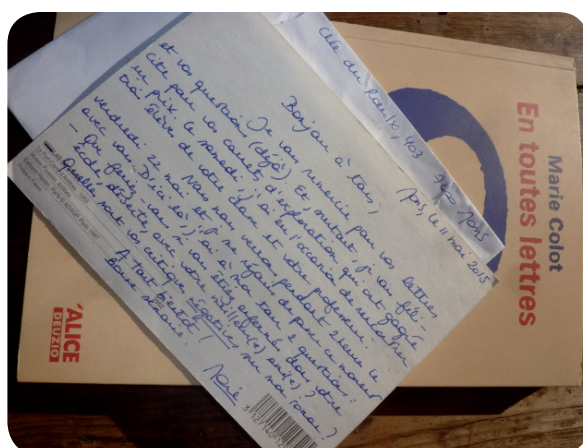 Marie Colot
En toutes lettres
'ALICE
DEUZIO
Mons, le 11 mai 2015
Bonjour à tous,
Je vous remercie pour vos lettres
et vos questions (déjà). Et surtout, je vous féli-
cite pour vos carnets d'exploration qui ont gagné
un prix. Ce samedi, j'ai eu l'occasion de rencontrer
trois élèves de votre classe et votre professeur.
Nous nous verrons pendant 2 heures le
vendredi 22 mai et je me réjouis de passer ce moment
avec vous. D'ici là, j'ai à mon tour 2 questions :
- Que feriez-vous si vous étiez enfermé dans votre
école déserte, avec votre meilleur(e) ami(e) ?
- Quelles sont vos critiques négatives sur mon roman ?
A tout bientôt !
Bonne semaine.
Marie